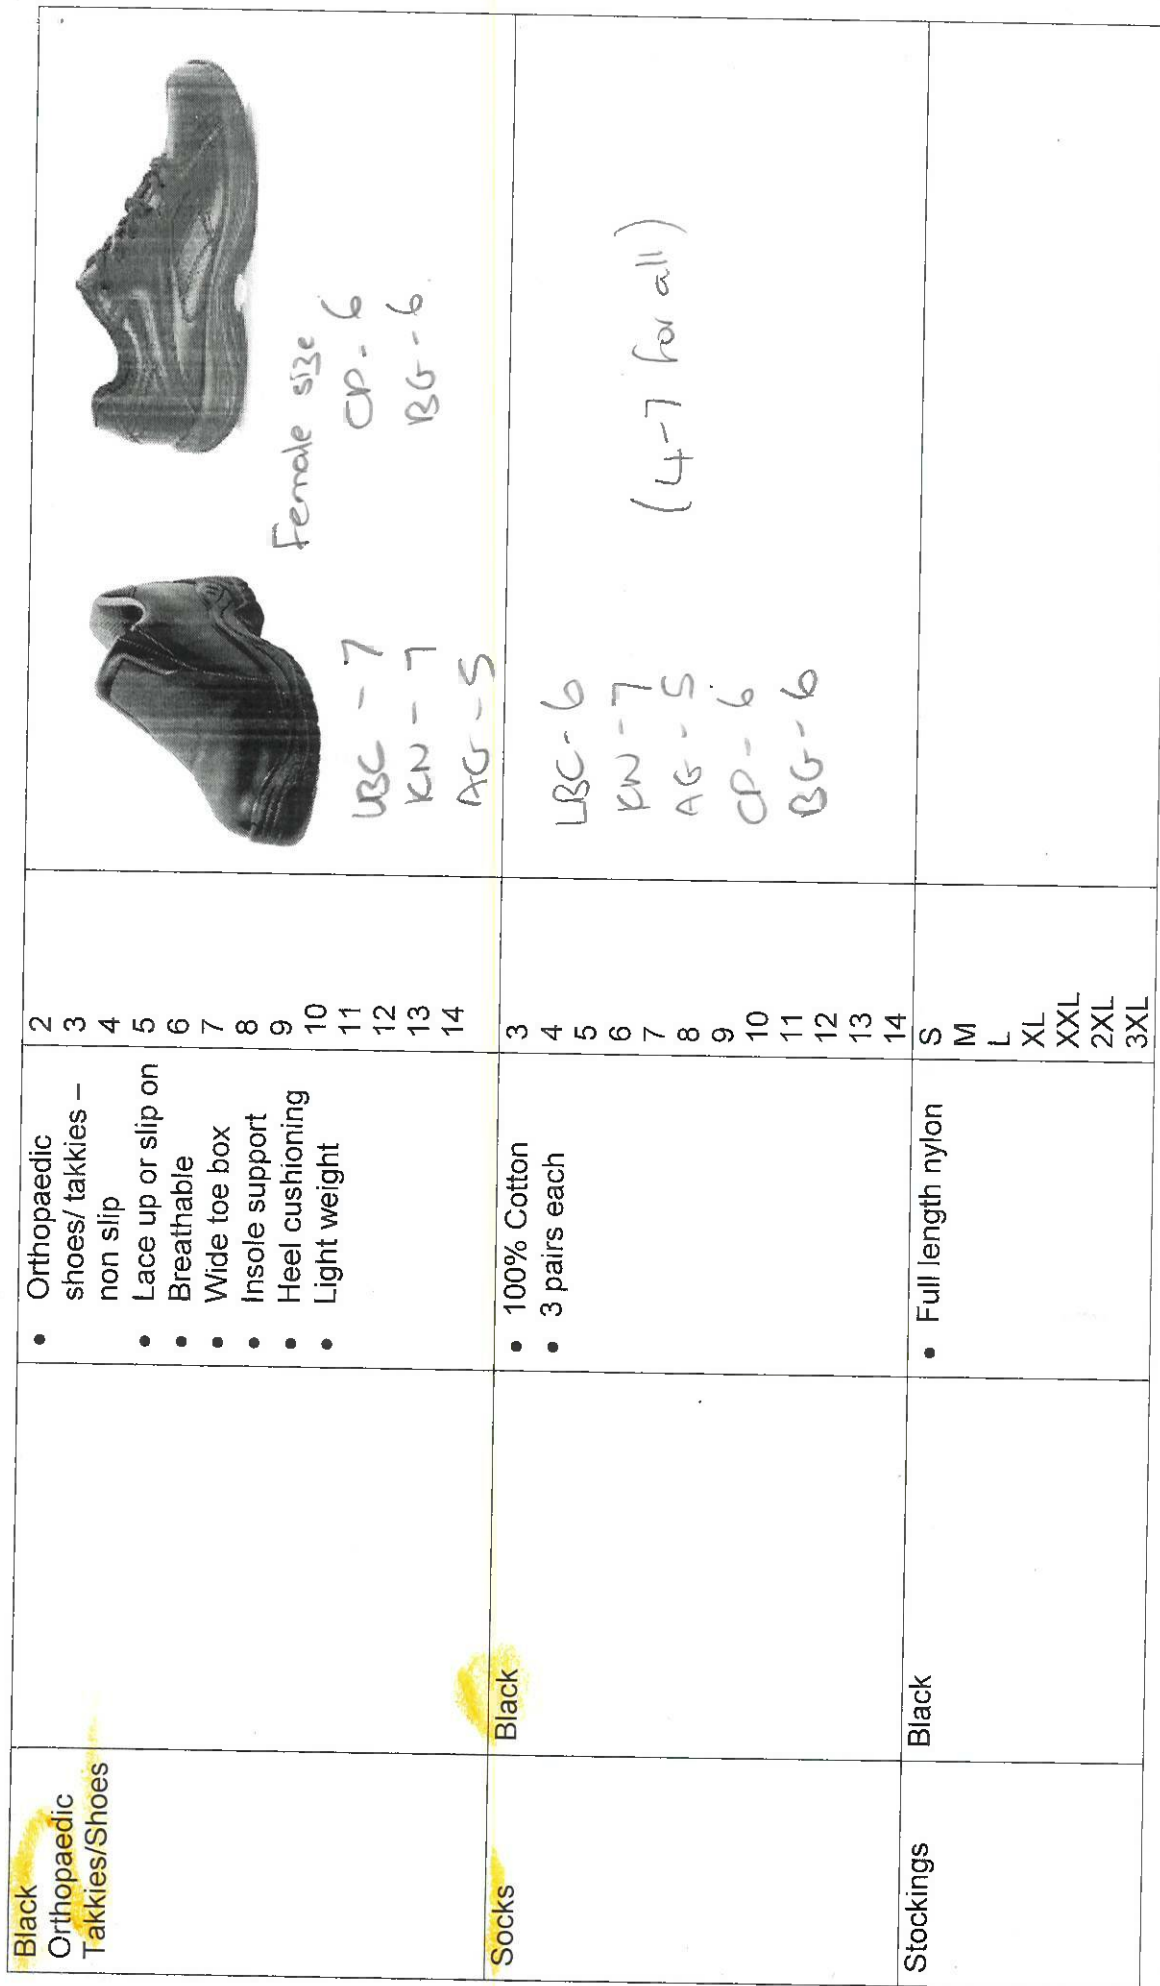 Black
Orthopaedic
Takkies/Shoes
• Orthopaedic
shoes/ takkies –
non slip
• Lace up or slip on
• Breathable
• Wide toe box
• Insole support
• Heel cushioning
• Light weight
2
3
4
5
6
7
8
9
10
11
12
13
14
Female size
KN - 7
AG - 5
CP - 6
BG - 6
Socks
Black
• 100% Cotton
• 3 pairs each
3
4
5
6
7
8
9
10
11
12
13
14
AG - 5
CP - 6
BG - 6
(4-7 for all)
Stockings
Black
• Full length nylon
S
M
L
XL
XXL
2XL
3XL